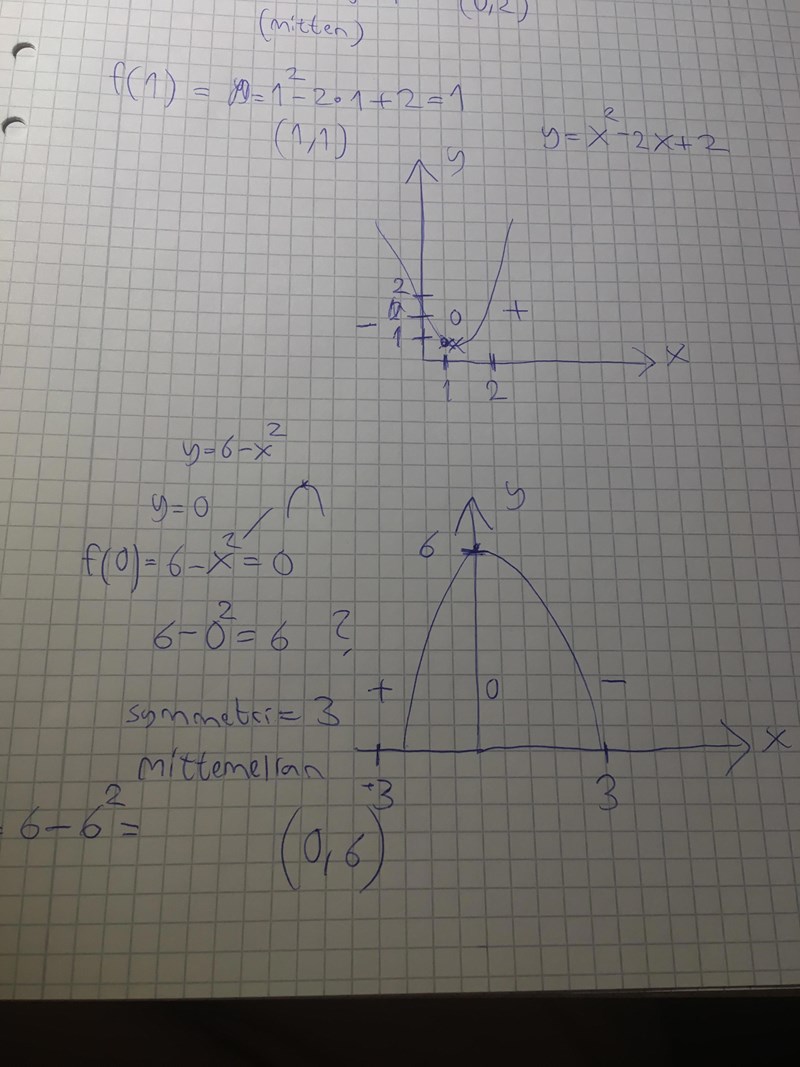 (mitten)
(0,2)
f(1) = = 1² - 2·1 + 2 = 1
(1,1)
y = x² - 2x + 2
y
2
0
+
-
1
x
1
2
y = 6 - x²
y = 0
y
f(0) = 6 - x² = 0
6
6 - 0² = 6 ?
+
0
-
symmetri = 3
x
mittemellan
-3
3
= 6 - 6² =
(0,6)